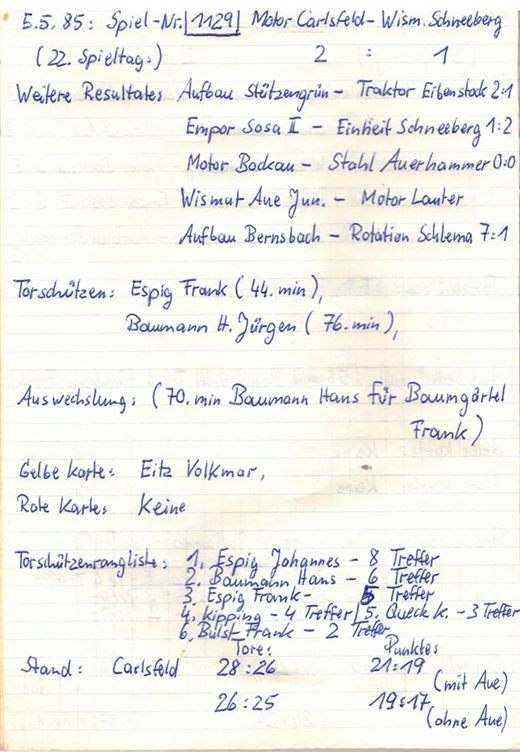 5.5.85: Spiel-Nr. 1129 Motor Carlsfeld - Wism. Schneeberg
(22. Spieltag:) 2 : 1
Weitere Resultate: Aufbau Stützengrün - Traktor Eibenstock 2:1
Empor Sosa II - Einheit Schneeberg 1:2
Motor Bockau - Stahl Auerhammer 0:0
Wismut Aue Jun. - Motor Lauter
Aufbau Bernsbach - Rotation Schlema 7:1
Torschützen: Espig Frank (44. min),
Baumann H. Jürgen (76. min),
Auswechslung: (70. min Baumann Hans für Baumgärtel
Frank)
Gelbe Karte: Eitz Volkmar,
Rote Karte: Keine
Torschützenrangliste: 1. Espig Johannes - 8 Treffer
2. Baumann Hans - 6 Treffer
3. Espig Frank - 5 Treffer
4. Kipping - 4 Treffer 5. Queck K. - 3 Treffer
6. Bulst Frank - 2 Treffer
Tore: Punkte:
Stand: Carlsfeld 28:26 21:19
(mit Aue)
26:25 19:17
(ohne Aue)